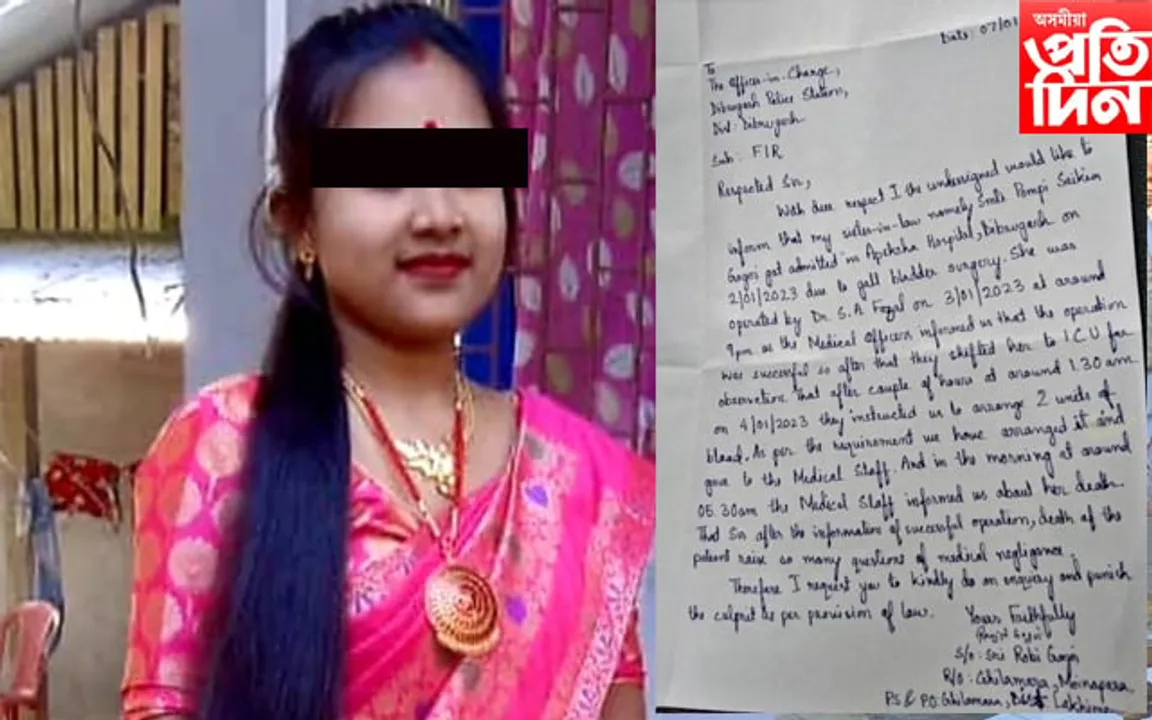 অসমীয়া
প্ৰতি
দিন
Date: 07/01
To
The Officer-in-Charge,
Dibrugarh Police Station,
Dist: Dibrugarh
Sub: FIR
Respected Sir,
With due respect I the undersigned would like to
inform that my sister-in-law namely Smti Pompi Saikia
Gogoi got admitted in Apeksha Hospital, Dibrugarh on
2/01/2023 due to gall bladder surgery. She was
operated by Dr. S.A. Fazal on 3/01/2023 at around
9pm as the Medical Officers informed us that the operation
was successful so after that they shifted her to I.C.U for
observation that after couple of hours at around 1.30 am
on 4/01/2023 they instructed us to arrange 2 units of
blood. As per the requirement we have arranged it and
gave to the Medical Staff. And in the morning at around
05.30am the Medical Staff informed us about her death.
That Sir after the information of successful operation, death of the
patient raise so many questions of medical negligance.
Therefore I request you to kindly do an enquiry and punish
the culprit as per provision of law.
Yours Faithfully
S/o: Sri Robi Gogoi
R/o: Ghilamara, Moinapara
P.S & P.O: Ghilamara, Dist Lakhim